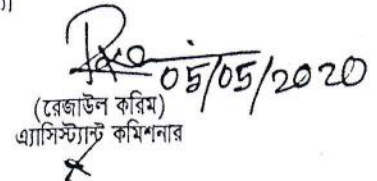 05/05/2020
(রেজাউল করিম)
এ্যাসিস্ট্যান্ট কমিশনার